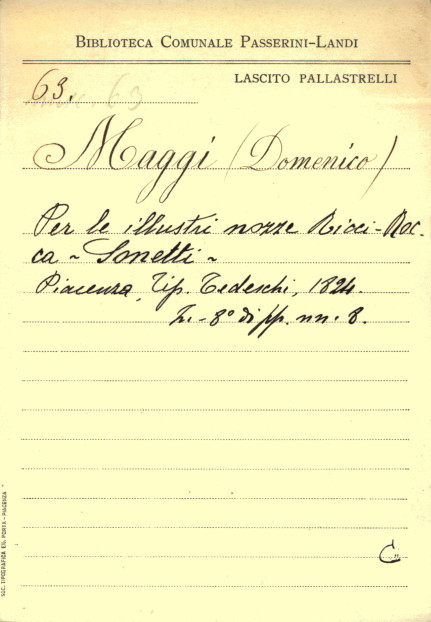 BIBLIOTECA COMUNALE PASSERINI-LANDI
LASCITO PALLASTRELLI
63.
Maggi (Domenico)
Per le illustri nozze Ricci-Roc-
ca ~ Sonetti ~
Piacenza, Tip. Tedeschi, 1824.
in-8° di pp. nn. 8.
C.
SOC. TIPOGRAFICA ED. PORTA - PIACENZA